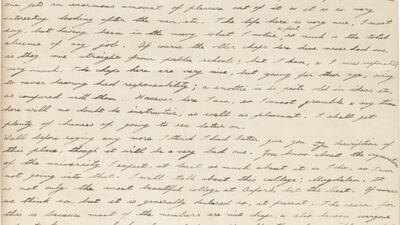 one gets an enormous amount of pleasure out of it as it is so very
interesting looking after the men, etc. The life here is very nice, I must
say, but having been in the navy what I notice so much is the total
absence of any job. Of course the other chaps here have never had one,
as they come straight from public school; but I have, & I miss responsibility
very much. The chaps here are very nice, but young for their age, owing
to never having had responsibility; & another is in quite old in ideas etc,
as compared with them. However here I am, so I must grumble & my time
here will no doubt be instructive, as well as pleasant. I shall get
plenty of chances of going to sea later on.
Well before saying any more I think I had better give you my description of
this place, though it will be a very bad one. You know about the organisation
of the university I expect, at least as much about it as I do, so I am
not going into that. I will talk about this college; Magdalen. It
is not only the most beautiful college at Oxford, but the best. Of course
we think so, but it is generally declared so, at present. The reason for
this is because most of the members are nice chaps, & also knows everyone